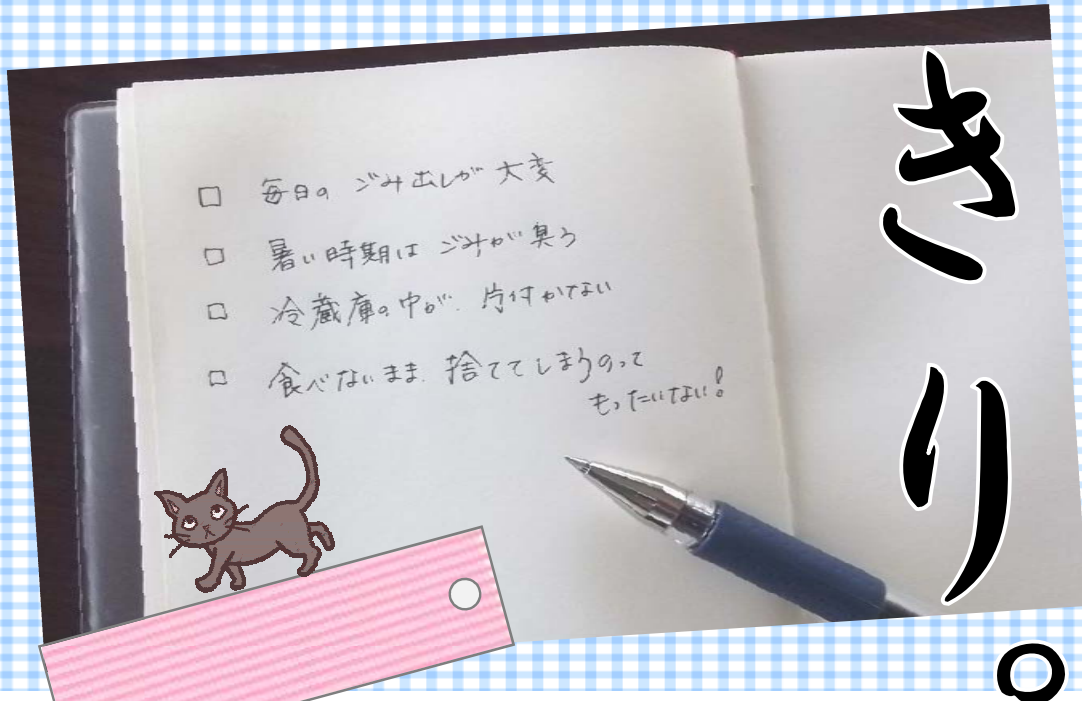 □ 毎日の ごみ出しが 大変
□ 暑い時期は ごみが 臭う
□ 冷蔵庫の中が、片付かない
□ 食べないまま、捨ててしまうのって
もったいない!
きり。